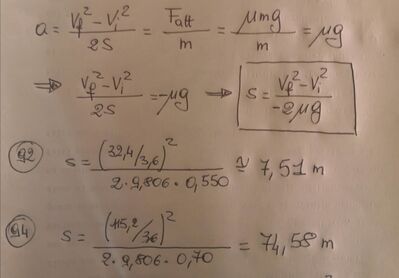 a = (V_f² - V_i²)/2S = F_att/m = μmg/m = μg
⇒ (V_f² - V_i²)/2S = -μg → S = (V_f² - V_i²)/-2μg
92 S = (32,4/3,6)²/2·9,806·0,550 ≅ 7,51 m
94 S = (115,2/36)²/2·9,806·0,70 = 74,58 m